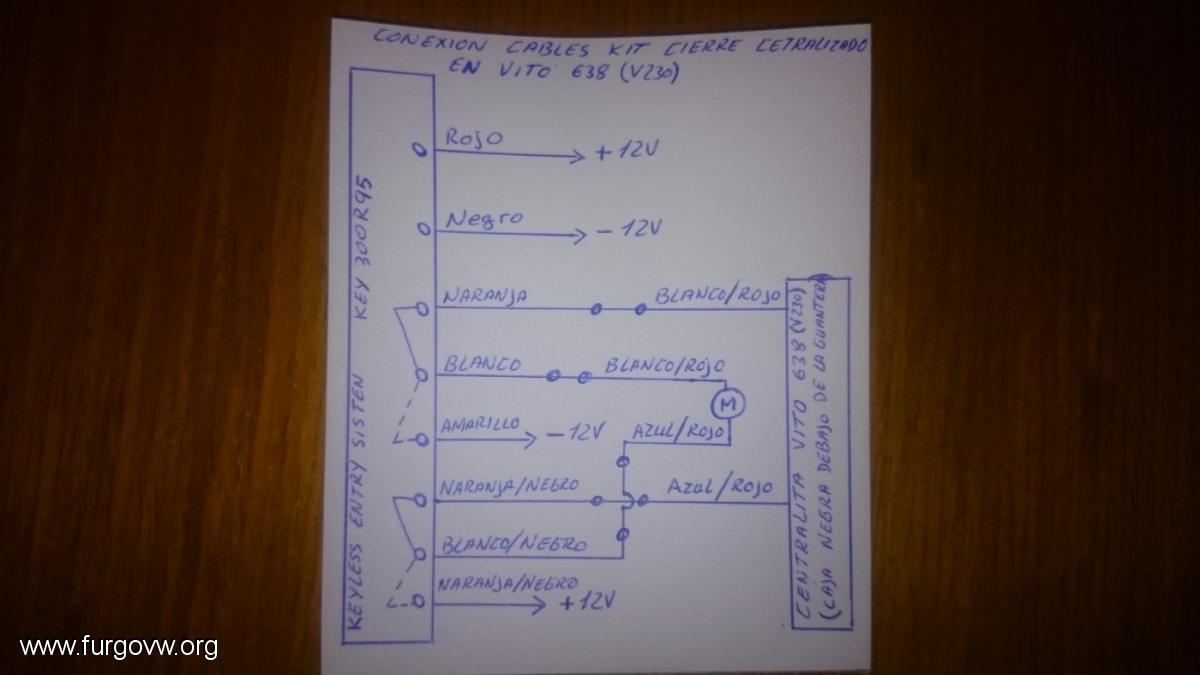 CONEXION CABLES KIT CIERRE CETRALIZADO
EN VITO 638 (V230)
Rojo
+ 12V
Negro
- 12V
NARANJA
BLANCO/ROJO
BLANCO
BLANCO/ROJO
M
AMARILLO
- 12V
AZUL/ROJO
NARANJA/NEGRO
AZUL/ROJO
BLANCO/NEGRO
NARANJA/NEGRO
+12V
KEYLESS ENTRY SISTEN KEY 300R95
CENTRALITA VITO 638 (V230)
(CAJA NEGRA DEBAJO DE LA GUANTERA)
www.furgovw.org